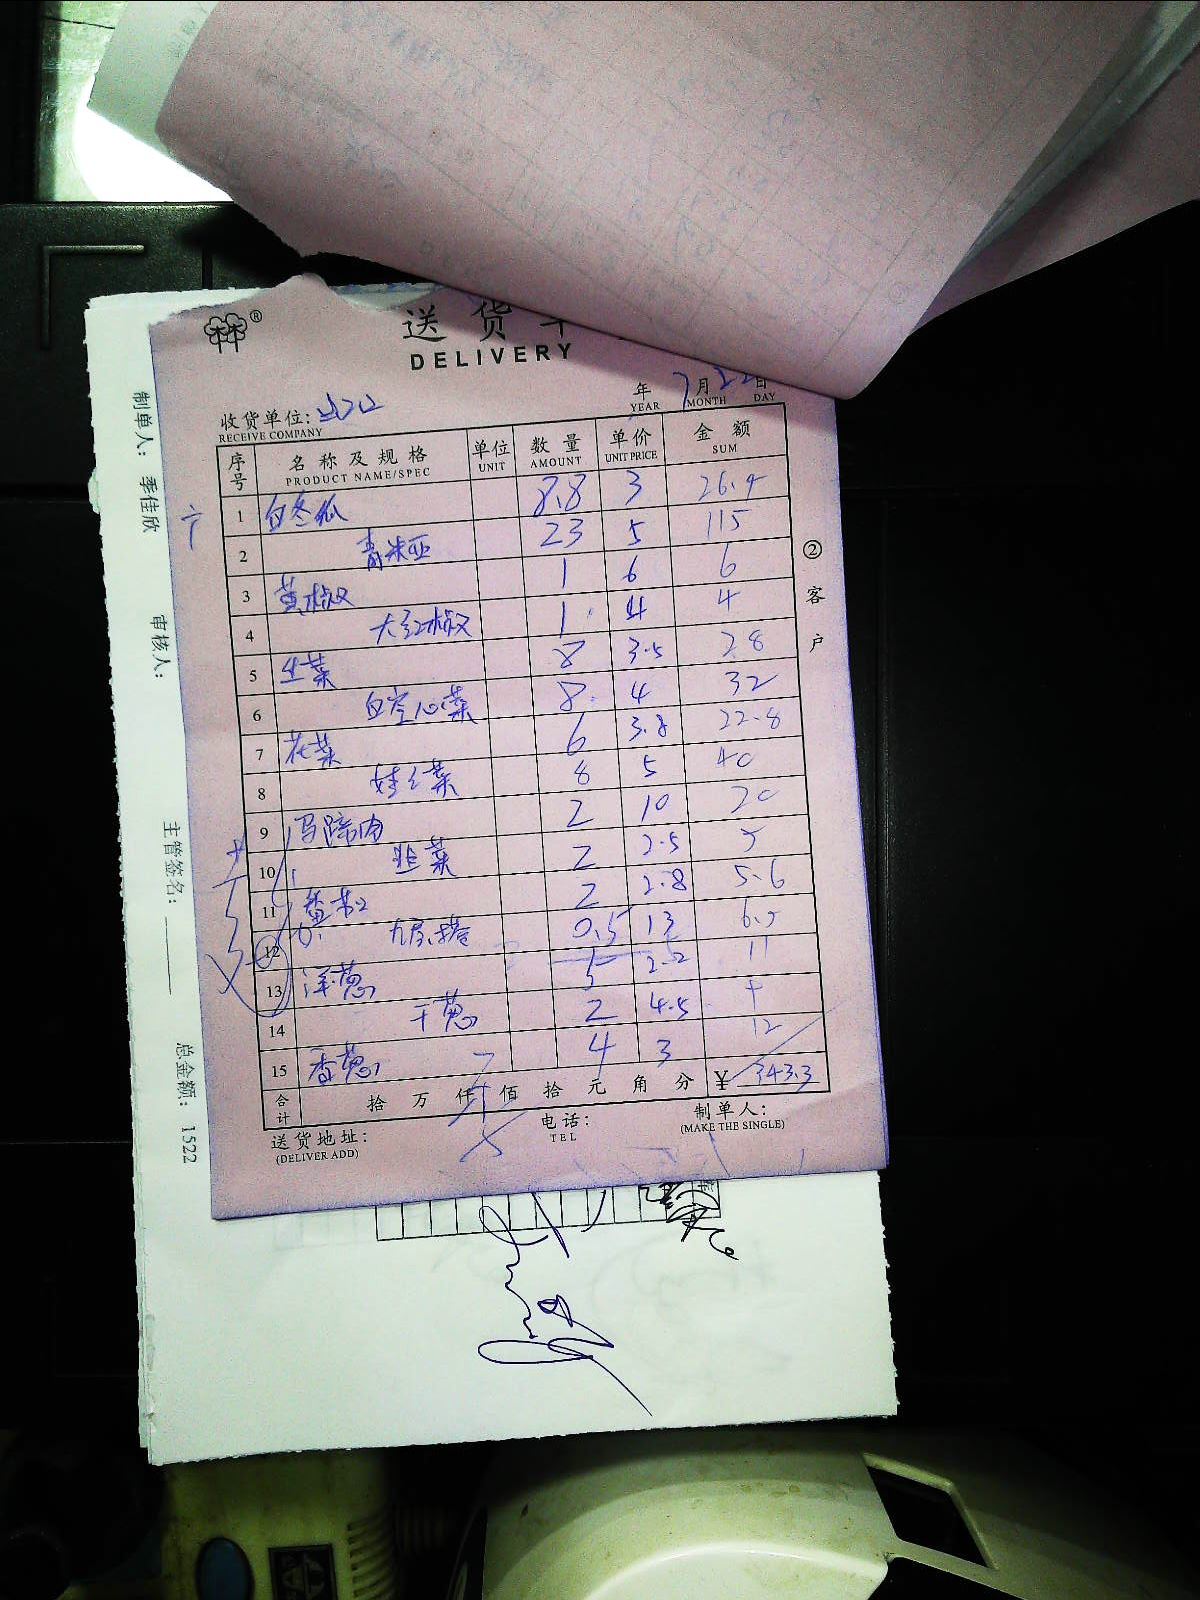 送货单
DELIVERY
收货单位:
RECEIVE COMPANY
年 7月22日
YEAR MONTH DAY
序号 名称及规格 单位 数量 单价 金额
PRODUCT NAME/SPEC UNIT AMOUNT UNIT PRICE SUM
1 白冬瓜 8.8 3 26.4
2 23 5 115
3 黄椒 1 6 6
4 大红椒 1 4 4
5 生菜 8 3.5 28
6 白空心菜 8 4 32
7 花菜 6 3.8 22.8
8 娃娃菜 8 5 40
9 马蹄肉 2 10 20
10 韭菜 2 2.5 5
11 番茄 2 2.8 5.6
12 九层塔 0.5 13 6.5
13 洋葱 5 2.2 11
14 干葱 2 4.5
15 香葱 4 3 12
合计 拾 万 仟 佰 拾 元 角 分 ¥ 343.3
送货地址:
(DELIVER ADD)
电话:
TEL
制单人:
(MAKE THE SINGLE)
② 客户
制单人: 季佳欣 审核人: 主管签名: 总金额: 1522